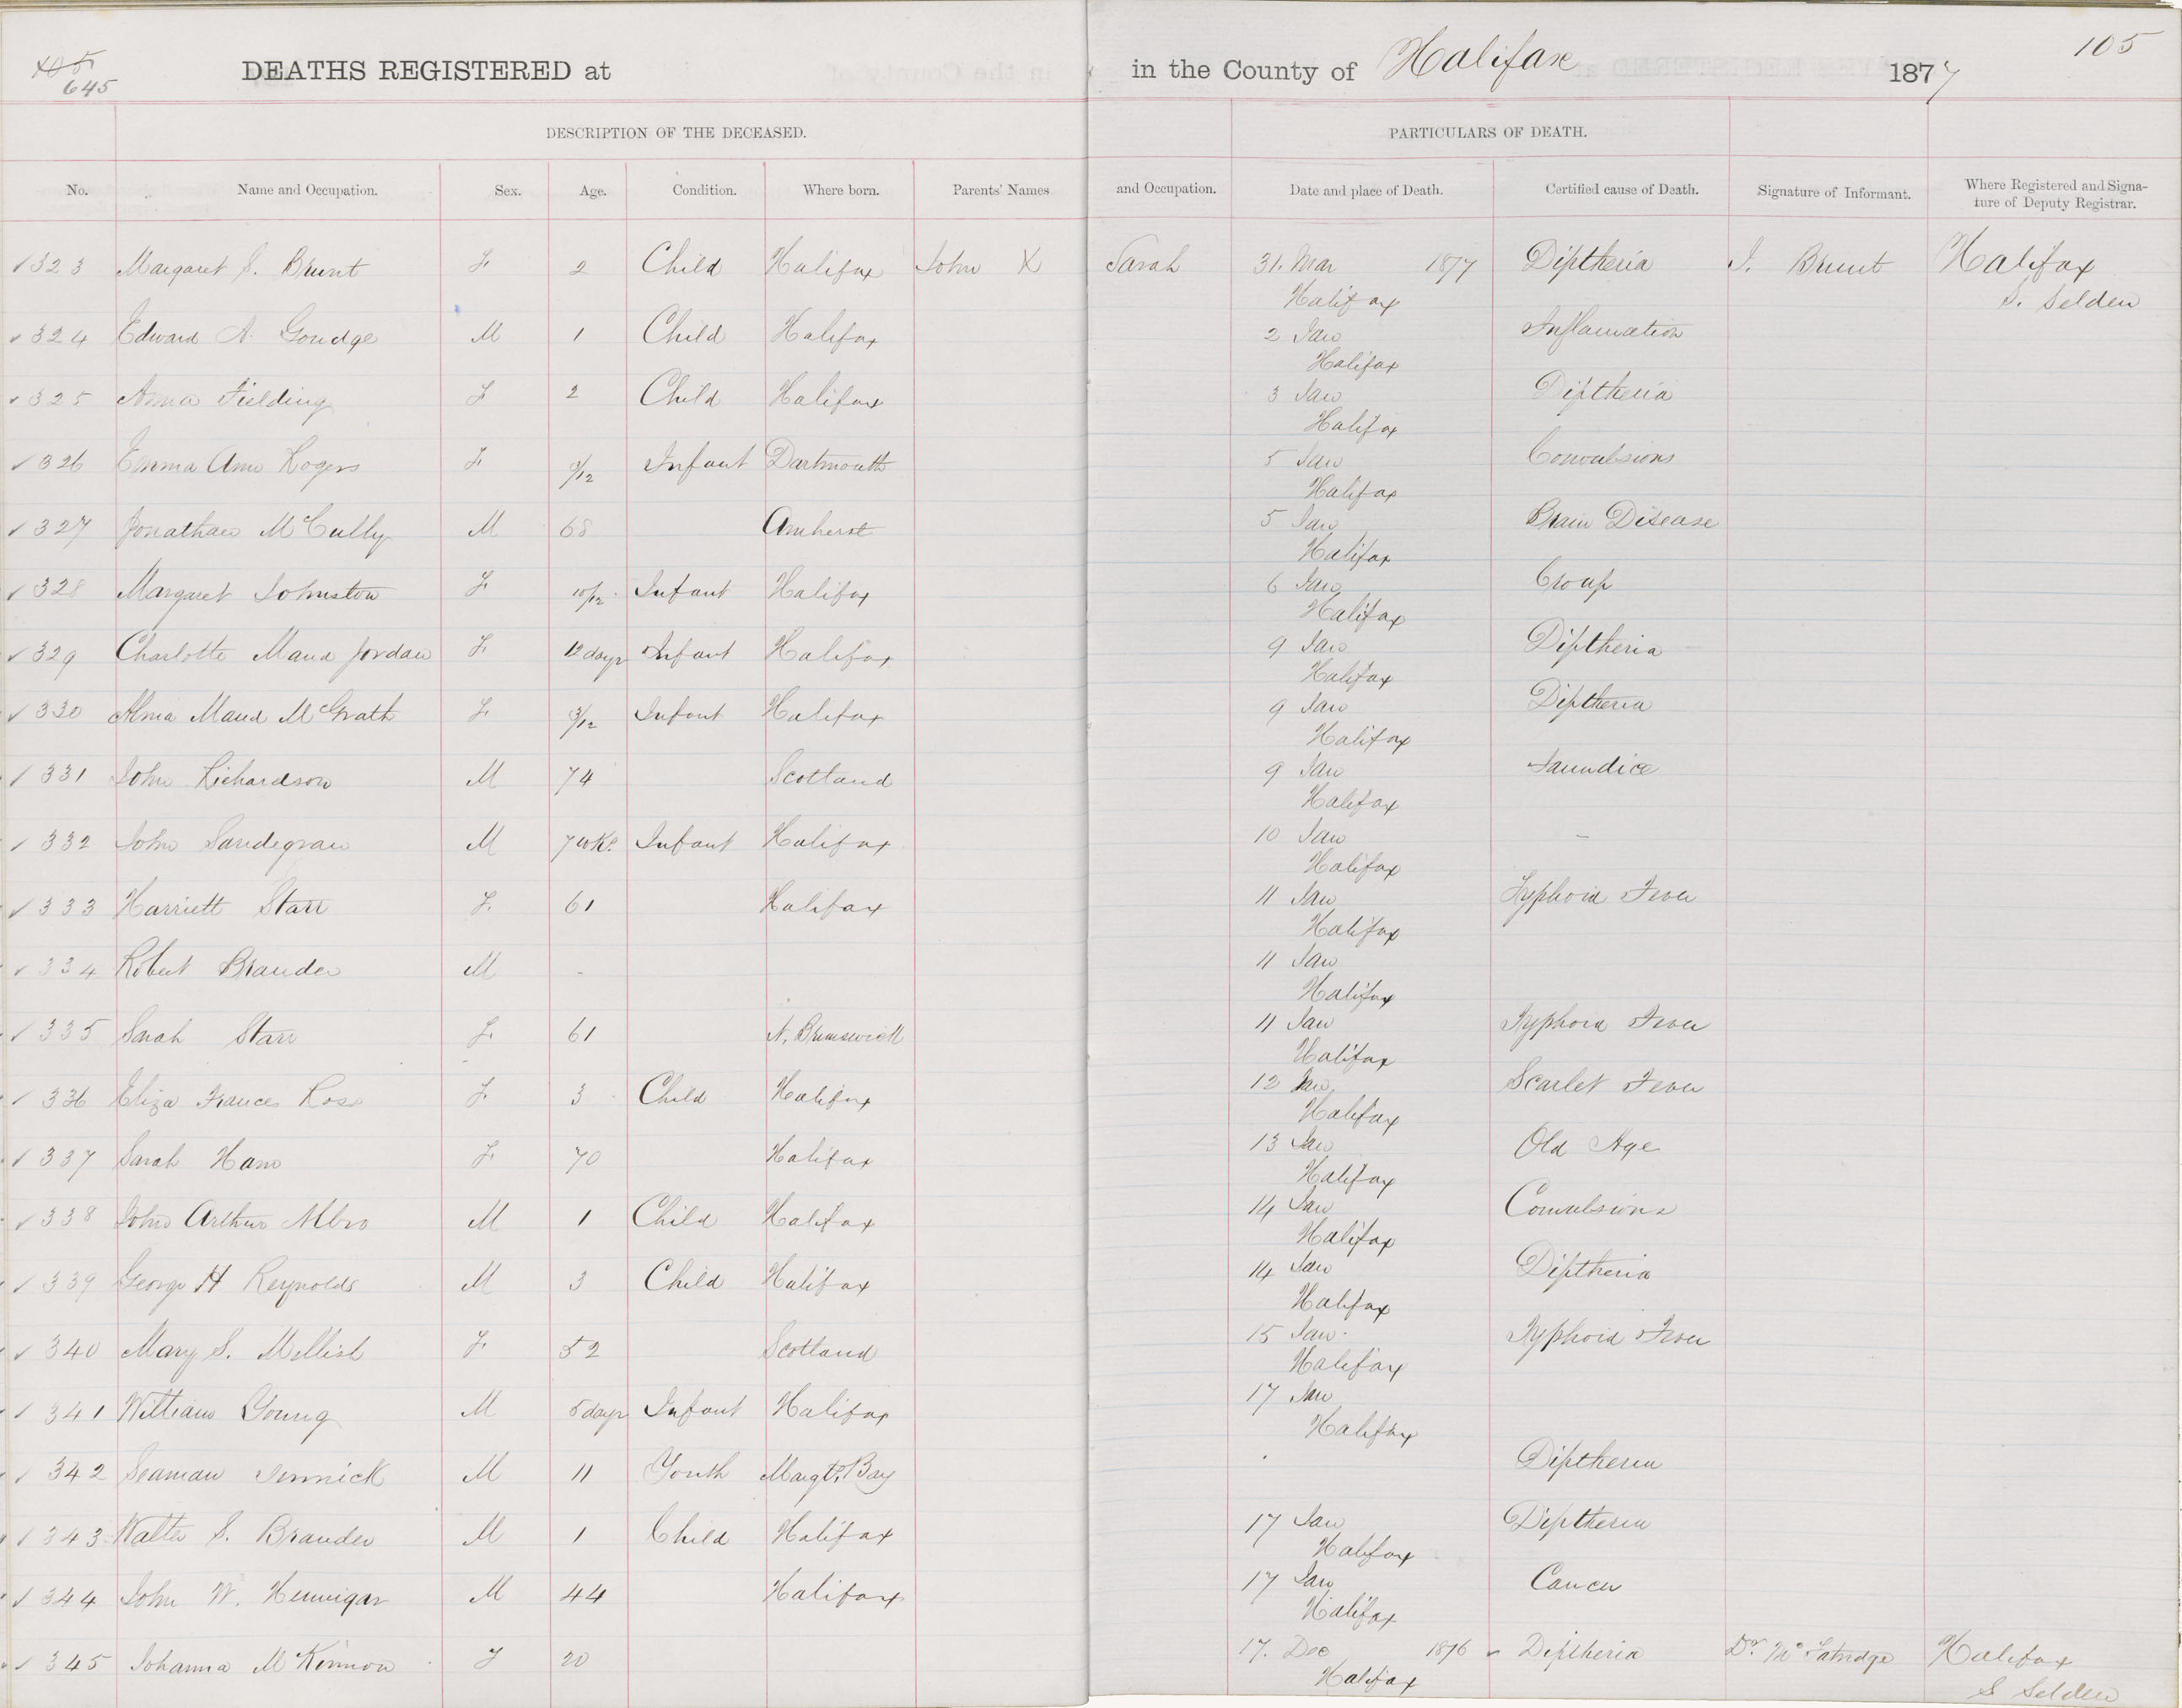 105
645
DEATHS REGISTERED at in the County of Halifax 1877
105
DESCRIPTION OF THE DECEASED. PARTICULARS OF DEATH.
No. Name and Occupation. Sex. Age. Condition. Where born. Parents' Names and Occupation. Date and place of Death. Certified cause of Death. Signature of Informant. Where Registered and Signa-
ture of Deputy Registrar.
323 Margaret S. Brunt F. 2 Child Halifax John X Sarah 31. Mar 1877 Diptheria J. Brunt Halifax
Halifax S. Selden
324 Edward A. Goudge M 1 Child Halifax 2 Jan Inflamation
Halifax
325 Anna Fielding F 2 Child Halifax 3 Jan Diptheria
Halifax
326 Emma Ann Rogers F. /12 Infant Dartmouth 5 Jan Convulsions
Halifax
327 Jonathan McCully M 68 Amherst 5 Jan Brain Disease
Halifax
328 Margaret Johnston F. 10/12 Infant Halifax 6 Jan Croup
Halifax
329 Charlotte Maud Jordan F. 12 days Infant Halifax 9 Jan Diptheria
Halifax
330 Alma Maud McGrath F. 3/12 Infant Halifax 9 Jan Diptheria
Halifax
331 John Richardson M 74 Scotland 9 Jan Jaundice
Halifax
332 John Sandegran M 7 wks. Infant Halifax 10 Jan –
Halifax
333 Harriett Starr F. 61 Halifax 11 Jan Typhoid Fever
Halifax
334 Robert Brander M - 11 Jan
Halifax
335 Sarah Starr F. 61 N. Brunswick 11 Jan Typhoid Fever
Halifax
336 Eliza Frances Ross F. 3 Child Halifax 12 Jan Scarlet Fever
Halifax
337 Sarah Ham F. 70 Halifax 13 Jan Old Age
Halifax
338 John Arthur Albro M 1 Child Halifax 14 Jan Convulsions
Halifax
339 George H Reynolds M 3 Child Halifax 14 Jan Diptheria
Halifax
340 Mary S. Mellish F. 52 Scotland 15 Jan. Typhoid Fever
Halifax
341 William Young M 5 days Infant Halifax 17 Jan
Halifax
342 Seaman M 11 Youth Margts. Bay Diptheria
343 Walter S. Brander M 1 Child Halifax 17 Jan Diptheria
Halifax
344 John W. Hennigar M 44 Halifax 17 Jan Cancer
Halifax
345 Johanna McKinnon F 20 17. Dec 1876 Diptheria Dr. McFatridge Halifax
Halifax S Selden